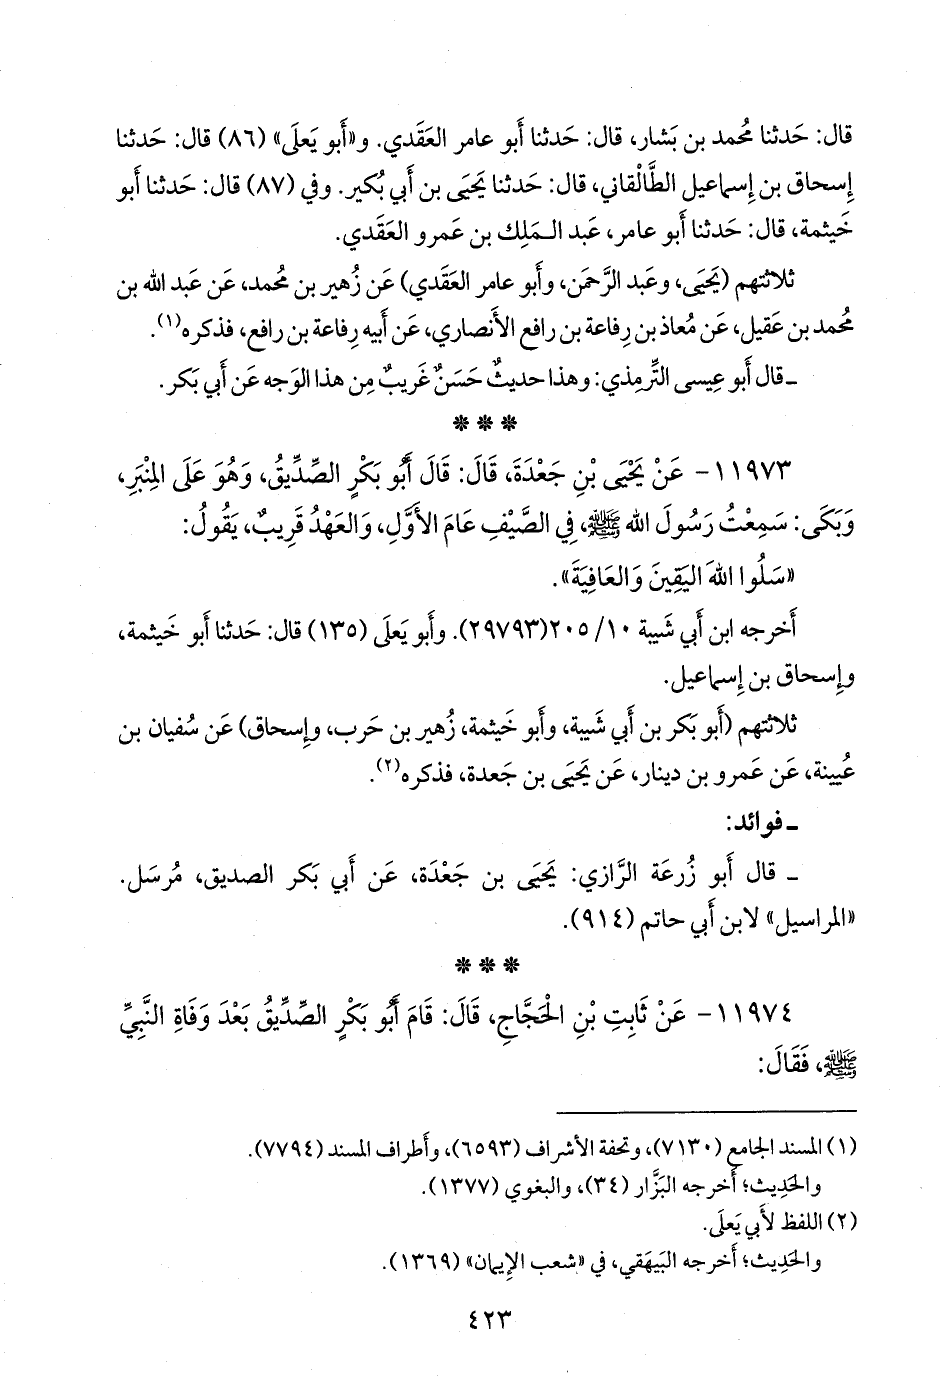 قال: حَدثنا مُحمد بن بَشار، قال: حَدثنا أَبو عامر العَقَدي. و«أَبو يَعلَى» (٨٦) قال: حَدثنا
إِسحاق بن إِسماعيل الطَّالْقاني، قال: حَدثنا يَحيَى بن أَبي بُكير. وفي (٨٧) قال: حَدثنا أَبو
خَيثمة، قال: حَدثنا أَبو عامر، عَبد الـمَلِك بن عَمرو العَقَدي.
ثلاثتهم (يَحيَى، وعَبد الرَّحمَن، وأَبو عامر العَقَدي) عَن زُهير بن مُحمد، عَن عَبد الله بن
مُحمد بن عَقيل، عَن مُعاذ بن رِفاعة بن رافع الأَنصاري، عَن أَبيه رِفاعة بن رافع، فذكره(١).
ـ قال أَبو عِيسى التِّرمِذي: وهذا حديثٌ حَسَنٌ غَريبٌ مِن هذا الوَجه عَن أَبي بَكر.
***
١١٩٧٣- عَنْ يَحْيَى بْنِ جَعْدَةَ، قَالَ: قَالَ أَبُو بَكْرٍ الصِّدِّيقُ، وَهُوَ عَلَى المِنْبَرِ،
وَبَكَى: سَمِعْتُ رَسُولَ الله ﷺ، فِي الصَّيْفِ عَامَ الأَوَّلِ، وَالعَهْدُ قَرِيبٌ، يَقُولُ:
«سَلُوا اللهَ اليَقِينَ وَالعَافِيَةَ».
أَخرجه ابن أَبي شَيبة ١٠/ ٢٠٥(٢٩٧٩٣). وأَبو يَعلَى (١٣٥) قال: حَدثنا أَبو خَيثمة،
وإِسحاق بن إِسماعيل.
ثلاثتهم (أَبو بَكر بن أَبي شَيبة، وأَبو خَيثمة، زُهير بن حَرب، وإِسحاق) عَن سُفيان بن
عُيينة، عَن عَمرو بن دينار، عَن يَحيَى بن جَعدة، فذكره(٢).
ـ فوائد:
ـ قال أَبو زُرعَة الرَّازي: يَحيَى بن جَعْدَة، عَن أَبي بَكر الصديق، مُرسَل.
«المراسيل» لابن أَبي حاتم (٩١٤).
***
١١٩٧٤- عَنْ ثَابِتِ بْنِ الحَجَّاجِ، قَالَ: قَامَ أَبُو بَكْرٍ الصِّدِّيقُ بَعْدَ وَفَاةِ النَّبِيِّ
ﷺ، فَقَالَ:
(١) المسند الجامع (٧١٣٠)، وتحفة الأشراف (٦٥٩٣)، وأَطراف المسند (٧٧٩٤).
والحَدِيث؛ أَخرجه البَزَّار (٣٤)، والبغوي (١٣٧٧).
(٢) اللفظ لأَبي يَعلَى.
والحَدِيث؛ أَخرجه البَيهَقي، في «شعب الإِيمان» (١٣٦٩).
٤٢٣